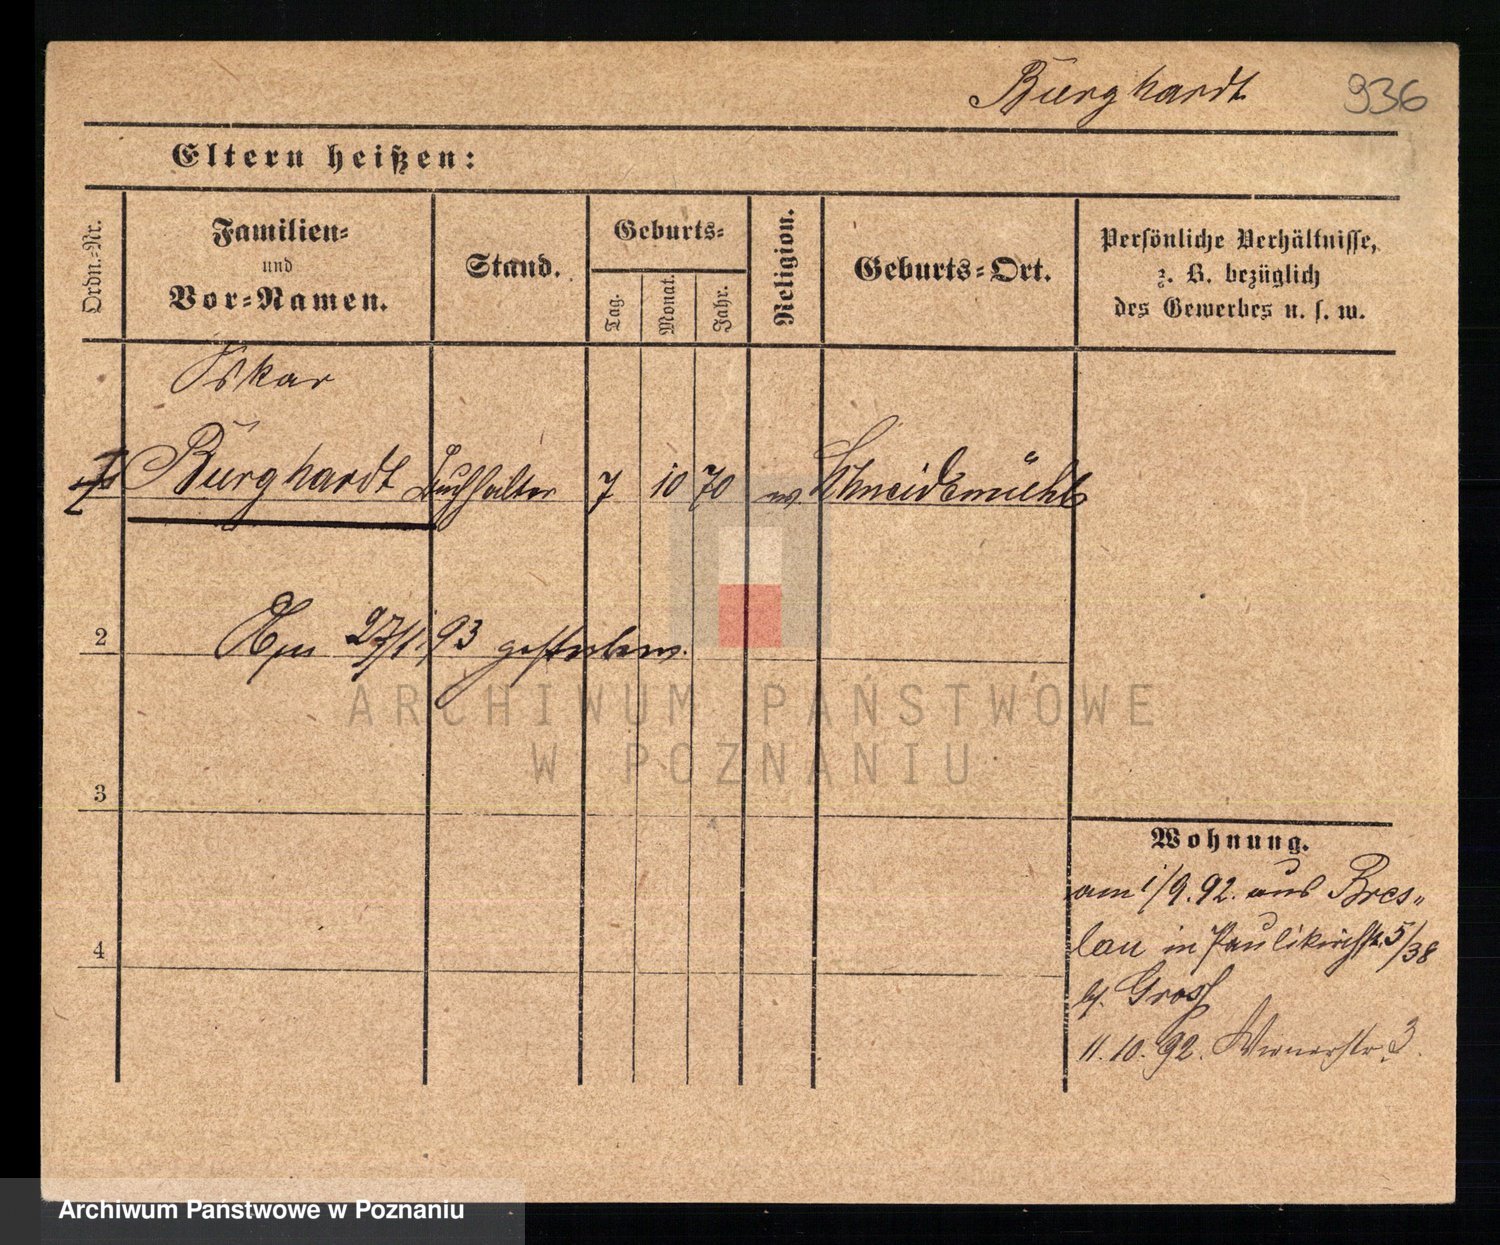 Burghardt 936
Eltern heißen:
Ordn.-Nr.
Familien-
und
Vor-Namen.
Stand.
Geburts-
Tag.
Monat.
Jahr.
Religion.
Geburts-Ort.
Persönliche Verhältnisse,
z. B. bezüglich
des Gewerbes u. s. w.
Oskar
Burghardt Buchhalter 7 10 70 Schneidemühl
2 Am 27/1. 93 gestorben.
3
4
Wohnung.
am 1/9. 92. aus Bres-
lau in Paulikirchstr. 5/38
b/. Gross
11. 10. 92. Wienerstr. 3.
ARCHIWUM PAŃSTWOWE
W POZNANIU
Archiwum Państwowe w Poznaniu